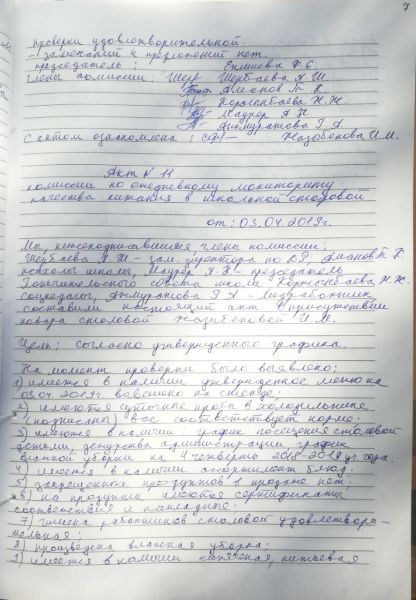 7
проверки удовлетворительной.
- замечаний и предложений нет.
председатель: Ф. С.
члены комиссии: Шербаева А. Ш.
Аманов Т. К.
Н. Ж.
Маурер А. П.
Г. А.
С актом ознакомлена: Казыбенова И. М.
Акт № 11
комиссии по ежедневному мониторингу
качества питания в школьной столовой
от: 03.04.2019г.
Мы, нижеподписавшиеся члены комиссии:
Шербаева А. Ш. - зам. директора по ВР, Аманов Т. К.
психолог школы, Маурер А. П. - председатель
Попечительского совета школы Н. Ж.
соцпедагог, Г. А. - медработник
составили настоящий акт в присутствии
повара столовой Казыбеновой И. М.
Цель: согласно утвержденного графика.
На момент проверки было выявлено:
1) имеется в наличии утвержденное меню на
03.04.2019г. вывешено на стенде;
2) имеются суточные проба в холодильнике
(подписаны) все соответствует норме.
3) имеются в наличии график посещения столовой
детьми, дежурства администрации, график
уборки на 4 четверть 2018-2019 уч. года.
4) имеется в наличии ассортимент блюд;
5) запрещенных продуктов в продаже нет;
6) на продукты имеются сертификаты
соответствия и накладные;
7) работников столовой удовлетвори-
тельная;
8) произведена влажная уборка;
9) имеется в наличии питьевая